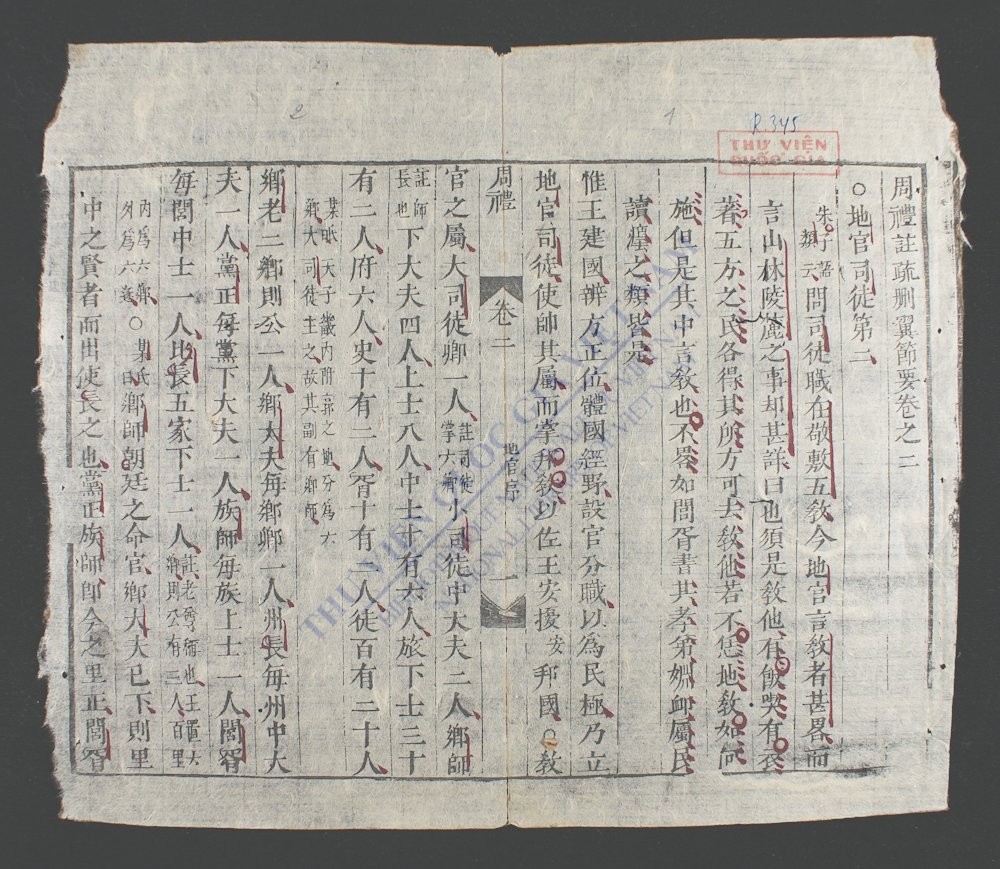 2
1
R.345
THƯ VIỆN
QUỐC GIA
周禮註疏刪翼節要卷之二
○地官司徒第二
朱子語類云問司徒職在敬敷五教今地官言教者甚畧而
言山林陵麓之事却甚詳曰也須是教他有飯喫有衣
著五方之民各得其所方可去教他若不恁地教如何
施但是其中言教也不畧如閭胥書其孝弟婣卹屬民
讀灋之類皆是
惟王建國辨方正位體國經野設官分職以為民極乃立
地官司徒使帥其屬而掌邦教以佐王安擾安邦國○教
周禮
卷二
地官序
一
官之屬大司徒卿一人註司徒掌六鄉小司徒中大夫二人鄉師
註師長也下大夫四人上士八人中士十有六人旅下士三十
有二人府六人史十有二人胥十有二人徒百有二十人
某氏天子畿內附郭之地分為六鄉大司徒主之故其副有鄉師
鄉老二鄉則公一人鄉大夫每鄉卿一人州長每州中大
夫一人黨正每黨下大夫一人族師每族上士一人閭胥
每閭中士一人比長五家下士一人註老尊稱也王置六鄉則公有三人百里
內為六鄉外為六遂○某氏曰鄉師朝廷之命官鄉大夫已下則里
中之賢者而出使長之也黨正族師即今之里正閭胥
THƯ VIỆN QUỐC GIA VIỆT NAM
NATIONAL LIBRARY OF VIETNAM